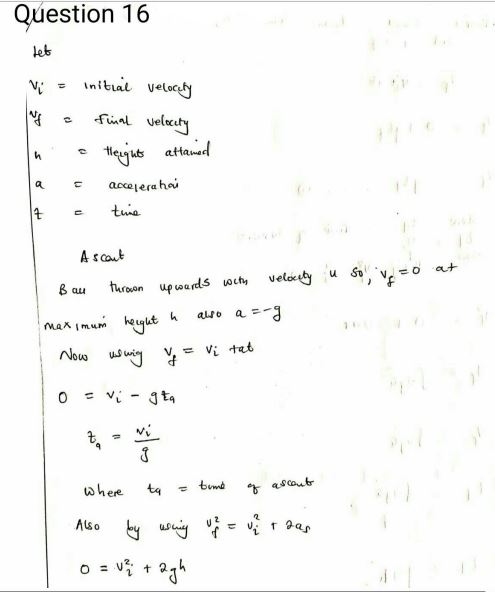 Question 16
Let
Vi = initial velocity
Vf = Final velocity
h = Heights attained
a = acceleration
t = time
Ascent
Ball thrown upwards with velocity u so, vf = 0 at
maximum height h also a = -g
Now using Vf = Vi + at
0 = Vi - gta
ta = Vi/g
Where ta = time of ascent
Also by using Vf² = Vi² + 2as
0 = Vi² + 2gh